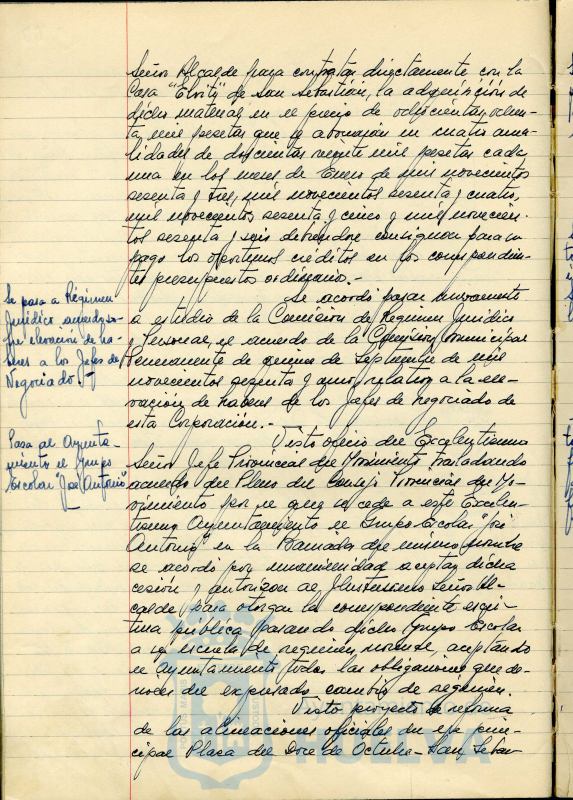 Señor Alcalde para contratar directamente con la
Casa "Elvity" de San Sebastián, la adquisición de
dicho material en el precio de ochocientas ochen-
ta mil pesetas que se abonarán en cuatro anua-
lidades de doscientas veinte mil pesetas cada
una en los meses de Enero de mil novecientos
sesenta y tres, mil novecientos sesenta y cuatro,
mil novecientos sesenta y cinco y mil novecien-
tos sesenta y seis debiéndose consignar para su
pago los oportunos créditos en los correspondien-
tes presupuestos ordinario.-
Se acordó pasar nuevamente
a estudio de la Comisión de Régimen Jurídico
y Personal, el acuerdo de la Comisión Municipal
Permanente de quince de Septiembre de mil
novecientos sesenta y uno, relativo a la ele-
vación de haberes de los Jefes de Negociado de
esta Corporación.-
Visto oficio del Excelentísimo
Señor Jefe Provincial del Movimiento trasladando
acuerdo del Pleno del Consejo Provincial del Mo-
vimiento por el que se cede a este Excelen-
tísimo Ayuntamiento el Grupo Escolar "José
Antonio" en la Barriada del mismo nombre
se acordó por unanimidad aceptar dicha
cesión y autorizar al Ilustrísimo Señor Al-
calde para otorgar la correspondiente escri-
tura pública pasando dicho Grupo Escolar
a ser escuela de régimen normal, aceptando
el Ayuntamiento todas las obligaciones que de-
riven del expresado cambio de régimen.
Visto proyecto de reforma
de las alineaciones oficiales del eje prin-
cipal Plaza del Doce de Octubre - San Sebas-
Se pasa a Régimen
Jurídico acuerdo so-
bre elevación de ha-
beres a los Jefes de
Negociado.-
Pasa al Ayunta-
miento el Grupo
Escolar "José Antonio"
HUELVA